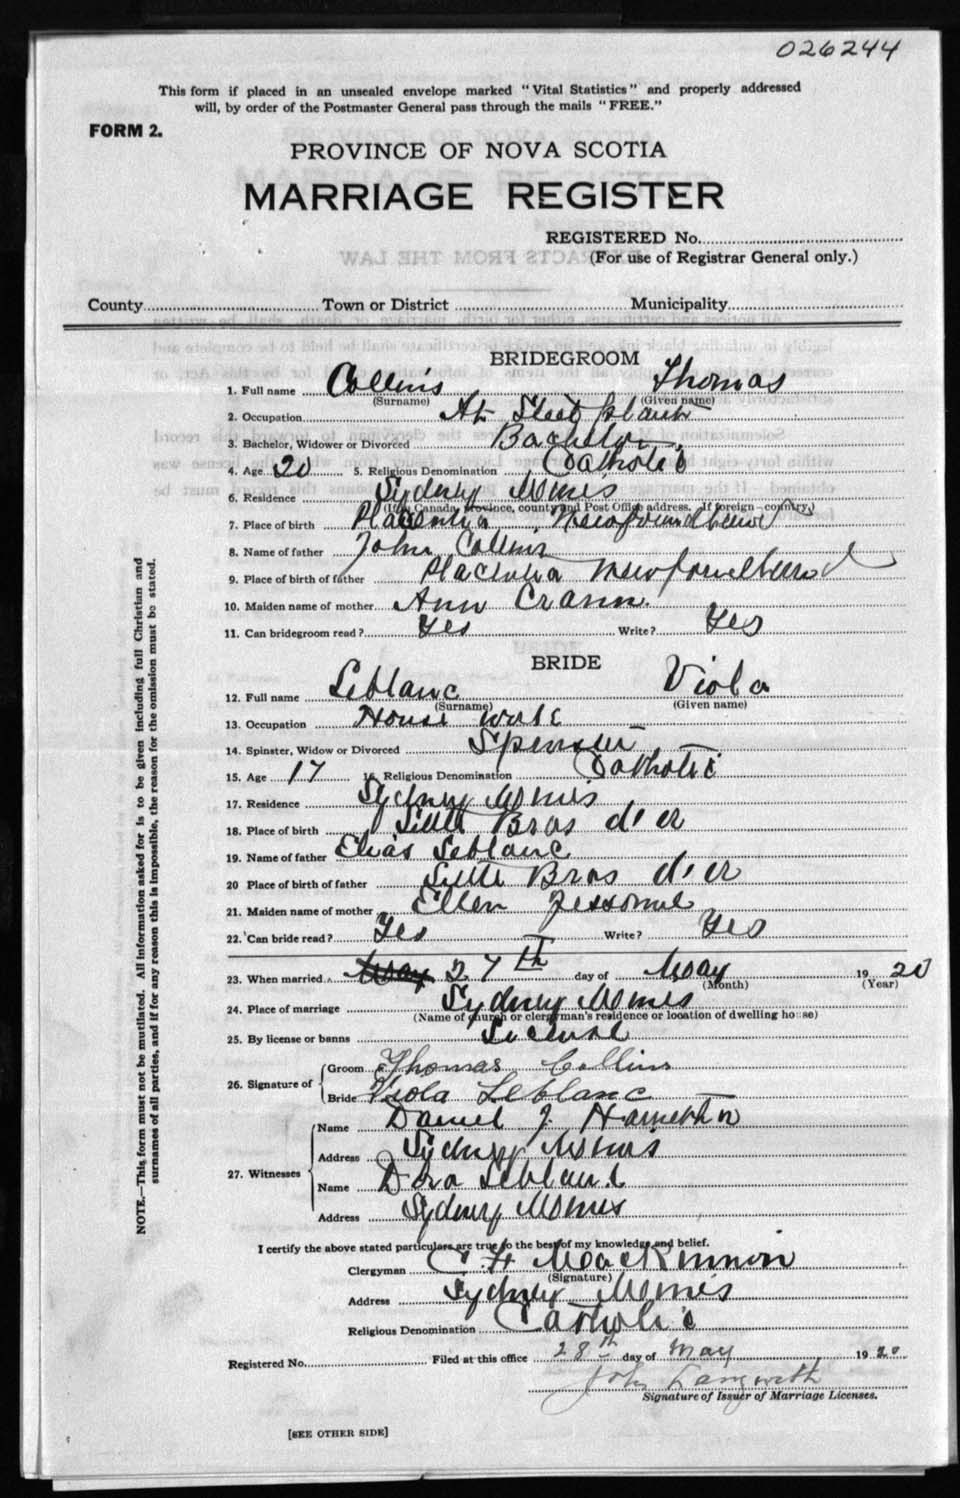 026244
This form if placed in an unsealed envelope marked "Vital Statistics" and properly addressed
will, by order of the Postmaster General pass through the mails "FREE."
FORM 2.
PROVINCE OF NOVA SCOTIA
MARRIAGE REGISTER
REGISTERED No.
(For use of Registrar General only.)
County Town or District Municipality
BRIDEGROOM
1. Full name Collins Thomas
(Surname) (Given name)
2. Occupation At Steel plant
3. Bachelor, Widower or Divorced Bachelor
4. Age 20 5. Religious Denomination Catholic
6. Residence Sydney Mines
(If in Canada, province, county and Post Office address. If foreign—country,)
7. Place of birth Placentia Newfoundland
8. Name of father John Collins
9. Place of birth of father Placentia Newfoundland
10. Maiden name of mother Ann Crann.
11. Can bridegroom read? Yes Write? Yes
BRIDE
12. Full name Leblanc Viola
(Surname) (Given name)
13. Occupation House work
14. Spinster, Widow or Divorced Spinster
15. Age 17 16. Religious Denomination Catholic
17. Residence Sydney Mines
18. Place of birth Little Bras d'or
19. Name of father Elias Leblanc
20 Place of birth of father Little Bras d'or
21. Maiden name of mother Ellen
22. Can bride read? Yes Write? Yes
23. When married May 27th day of May 1920
(Month) (Year)
24. Place of marriage Sydney Mines
(Name of church or clergyman's residence or location of dwelling house)
25. By license or banns License
26. Signature of Groom Thomas Collins
Bride Viola Leblanc
27. Witnesses
Name Daniel J.
Address Sydney Mines
Name Dora Leblanc
Address Sydney Mines
I certify the above stated particulars are true to the best of my knowledge and belief.
Clergyman C. H. MacKinnon
(Signature)
Address Sydney Mines
Religious Denomination Catholic
Registered No. Filed at this office 28th day of May 1920
John Langwith
Signature of Issuer of Marriage Licenses.
[SEE OTHER SIDE]
NOTE.—This form must not be mutilated. All information asked for is to be given including full Christian and
surnames of all parties, and if for any reason this is impossible, the reason for the omission must be stated.